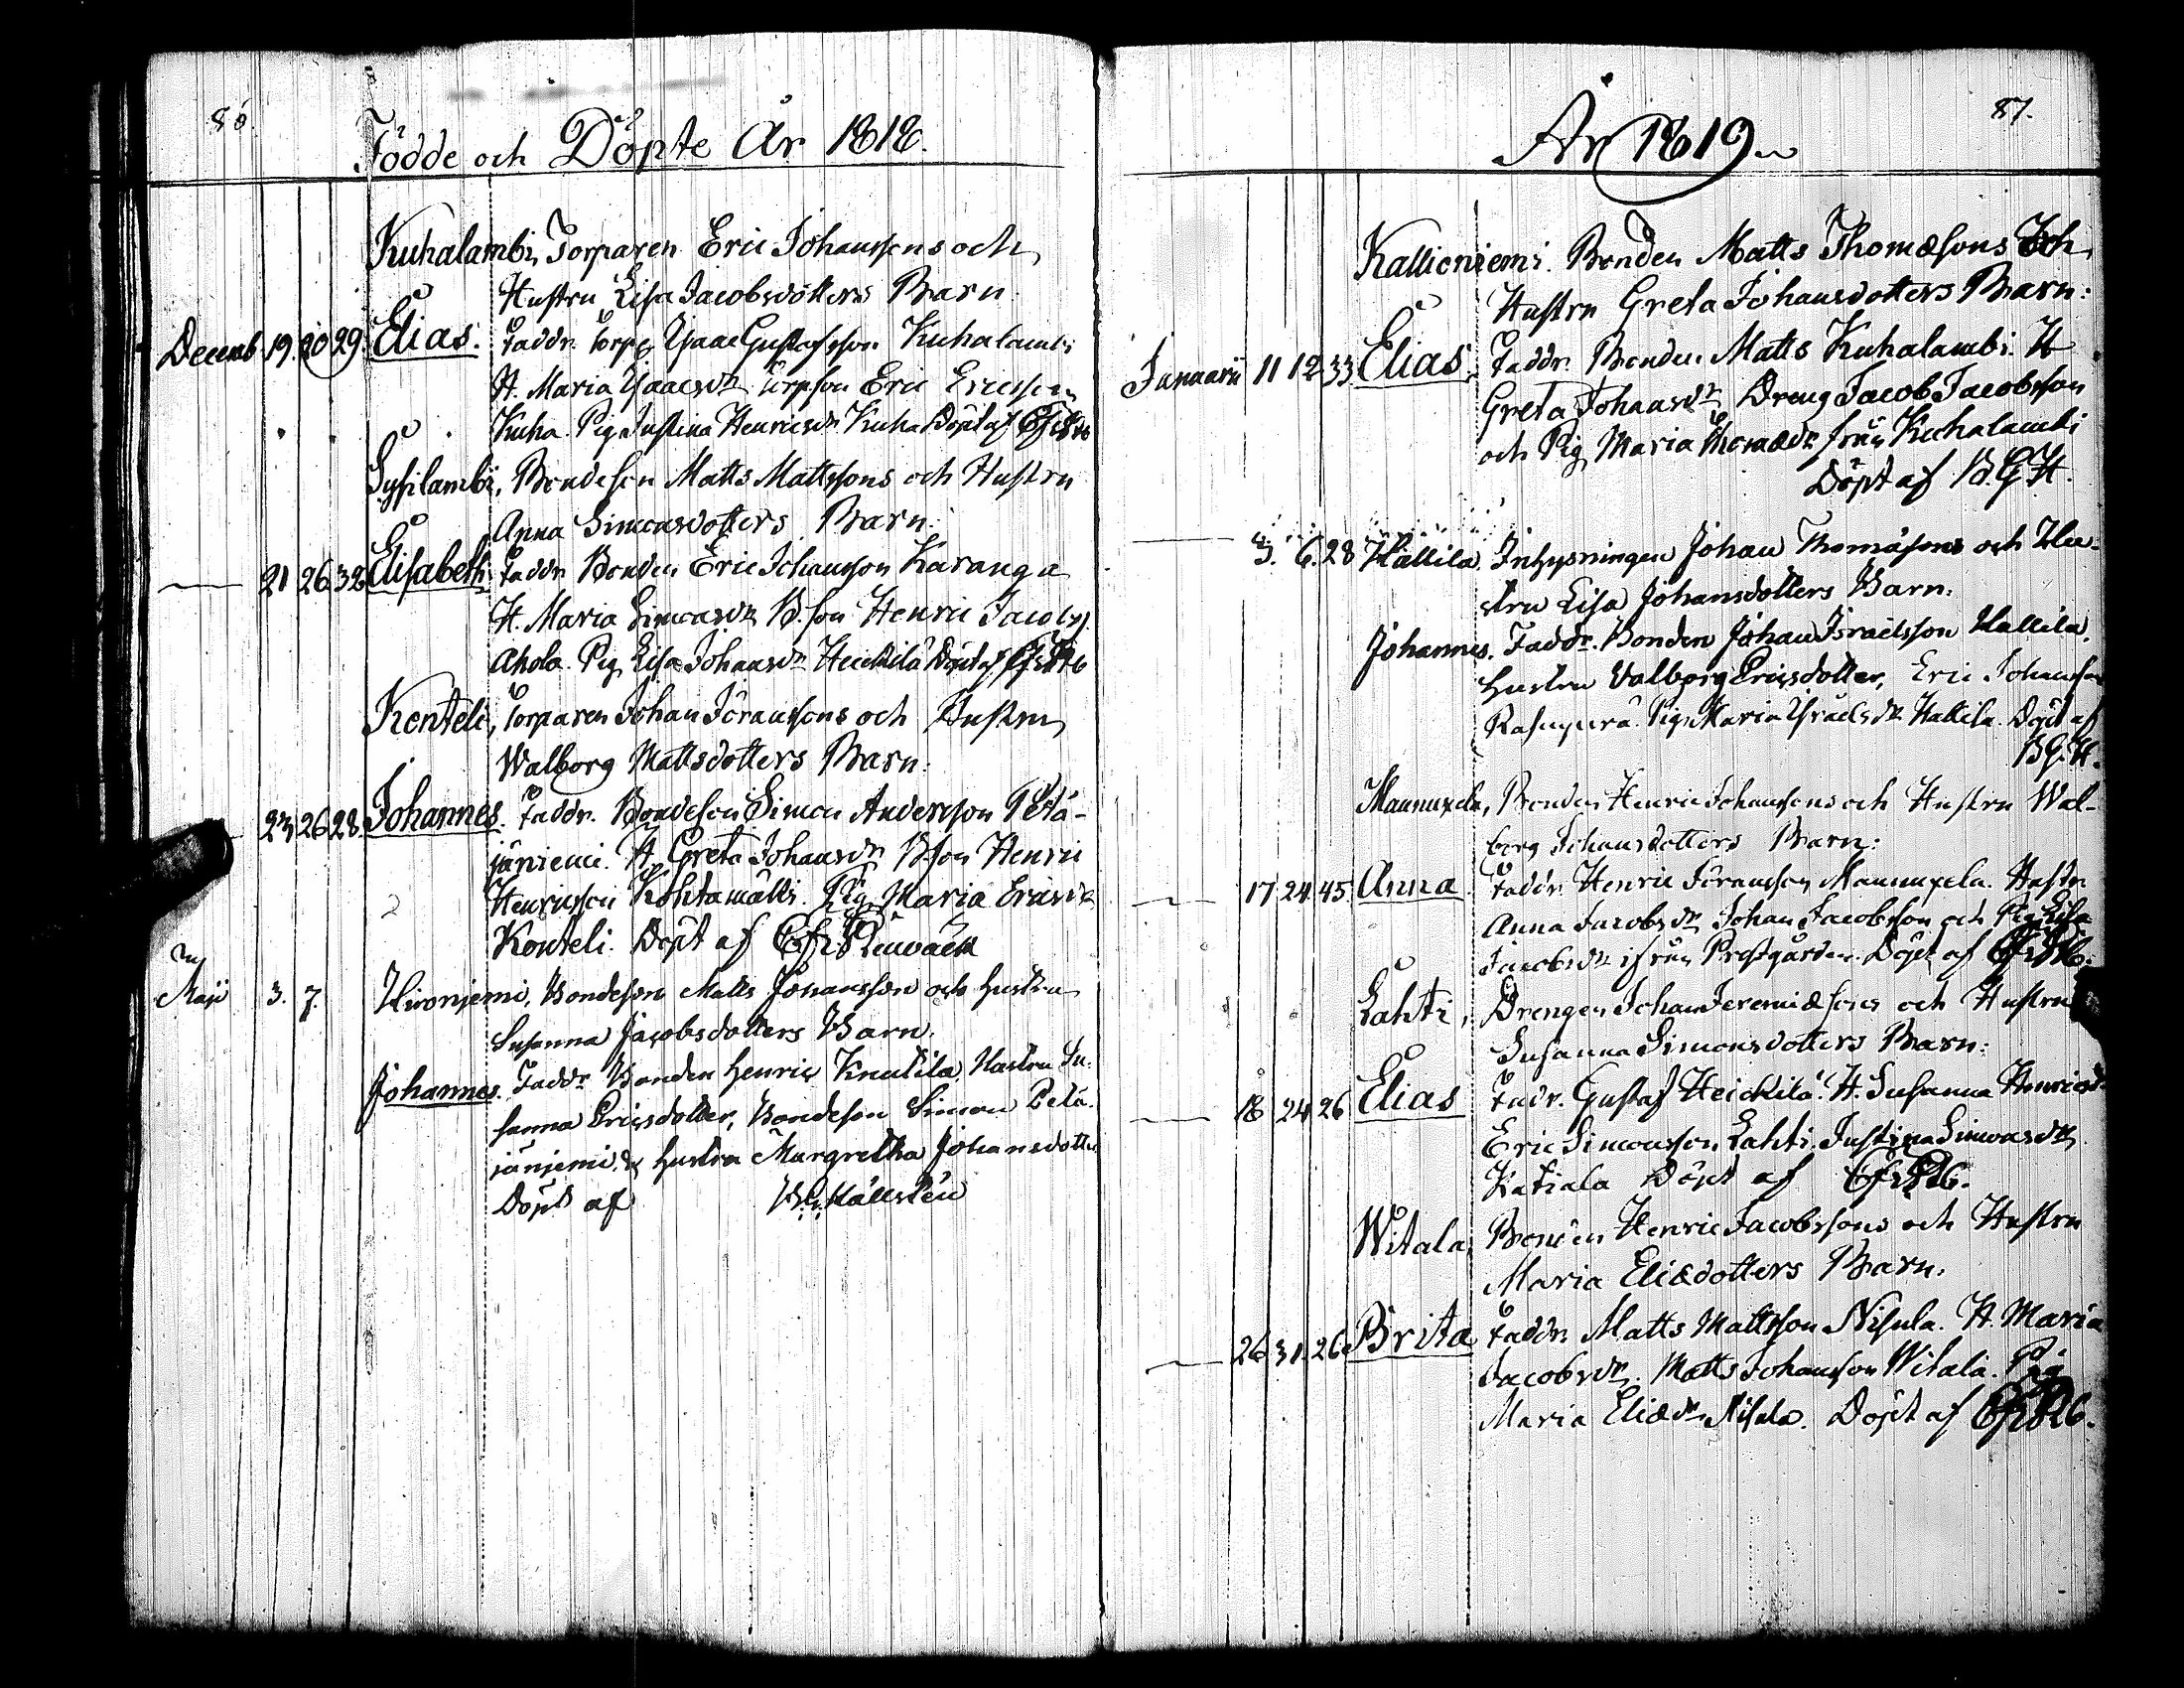 86.
Födde och Döpte År 1818.
Kuhalambi, Torparen Eric Johanssons och
Hustru Lisa Jacobsdotters Barn.
Decemb. 19. 20 29. Elias. Faddr. Torp. Isaac Gustafsson Kuhalambi
H. Maria Isaacsdr Torpson Eric Ericsson
Kuha. Pig. Justina Henricsdr Kuha Döpt af
Sysilambi, Bondeson Matts Mattssons och Hustru
Anna Simonsdotters Barn.
21 26 32 Elisabeth Faddr Bonden Eric Johansson Karanga
H. Maria Simonsdr B.son Henric Jacobss.
Ahola. Pig. Lisa Johansdr Heickilä Döpt af
Konteli, Torparen Johan Göranssons och Hustru
Walborg Mattsdotters Barn.
23 26 28. Johannes. Faddr. Bondeson Simon Andersson Petä-
jäniemi. H. Greta Johansdr B.son Henric
Henricsson Kohtamäki. Pig. Maria Ericsdr
Konteli. Döpt af
Maji 3. 7. Hironjemi, Bondeson Matts Johansson och hustru
Susanna Jacobsdotters Barn.
Johannes. Faddr Bonden Henric Knutila, Hustru Su-
sanna Ericsdotter, Bondeson Simon Petä-
jänjemi & hustru Margretha Johansdotter
Döpt af B.G. Hällsten
87.
År 1819.
Kallioniemi. Bonden Matts Thomæsons Och
Hustru Greta Johansdotters Barn:
Januarii 11 12 33 Elias Faddr. Bonden Matts Kuhalambi. H
Greta Johansdr Dreng Jacob Jacobsson
och Pig Maria Thomædr från Kuhalambi
Döpt af B.G.H.
3. 6. 28 Hallila. Inhysningen Johan Thomäsons och Hu-
stru Lisa Johansdotters Barn.
Johannes. Faddr. Bonden Johan Israelsson Hallila,
Hustru Valborg Ericsdotter, Eric Johansson
Pig. Maria Israelsdr Hallila. Döpt af
B.G.H.
Mannuxela, Bonden Henric Johanssons och Hustru Wal-
borg Johansdotters Barn:
17 24 45. Anna Faddr. Henric Göransson Mannuxela. Hustr.
Anna Jacobsdr Johan Jacobsson och Pig Lisa
Jacobsdr ifrån Prestgården. Döpt af
Lahti, Drengen Johan Jeremiæsons och Hustru
Susanna Simonsdotters Barn:
18 24 26 Elias Fadr. Gustaf Heickilä. H. Susanna Henricsd
Eric Simonsson Lahti. Justina Simonsdr
Katiala Döpt af
Witala, Bonden Henric Jacobssons och Hustru
Maria Eliædotters Barn.
26 31. 26 Brita Faddr. Matts Mattsson Nisula. H. Maria
Jacobsdr. Matts Johansson Witala. Pig
Maria Eliædr Nisula. Döpt af